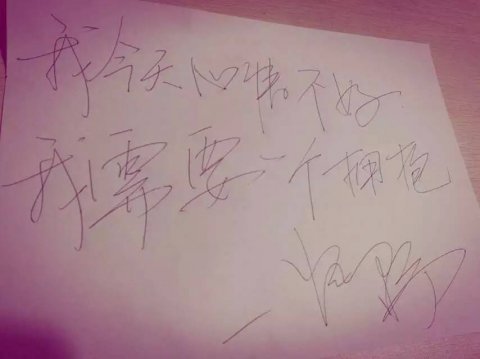 我今天心情不好
我需要一个拥抱